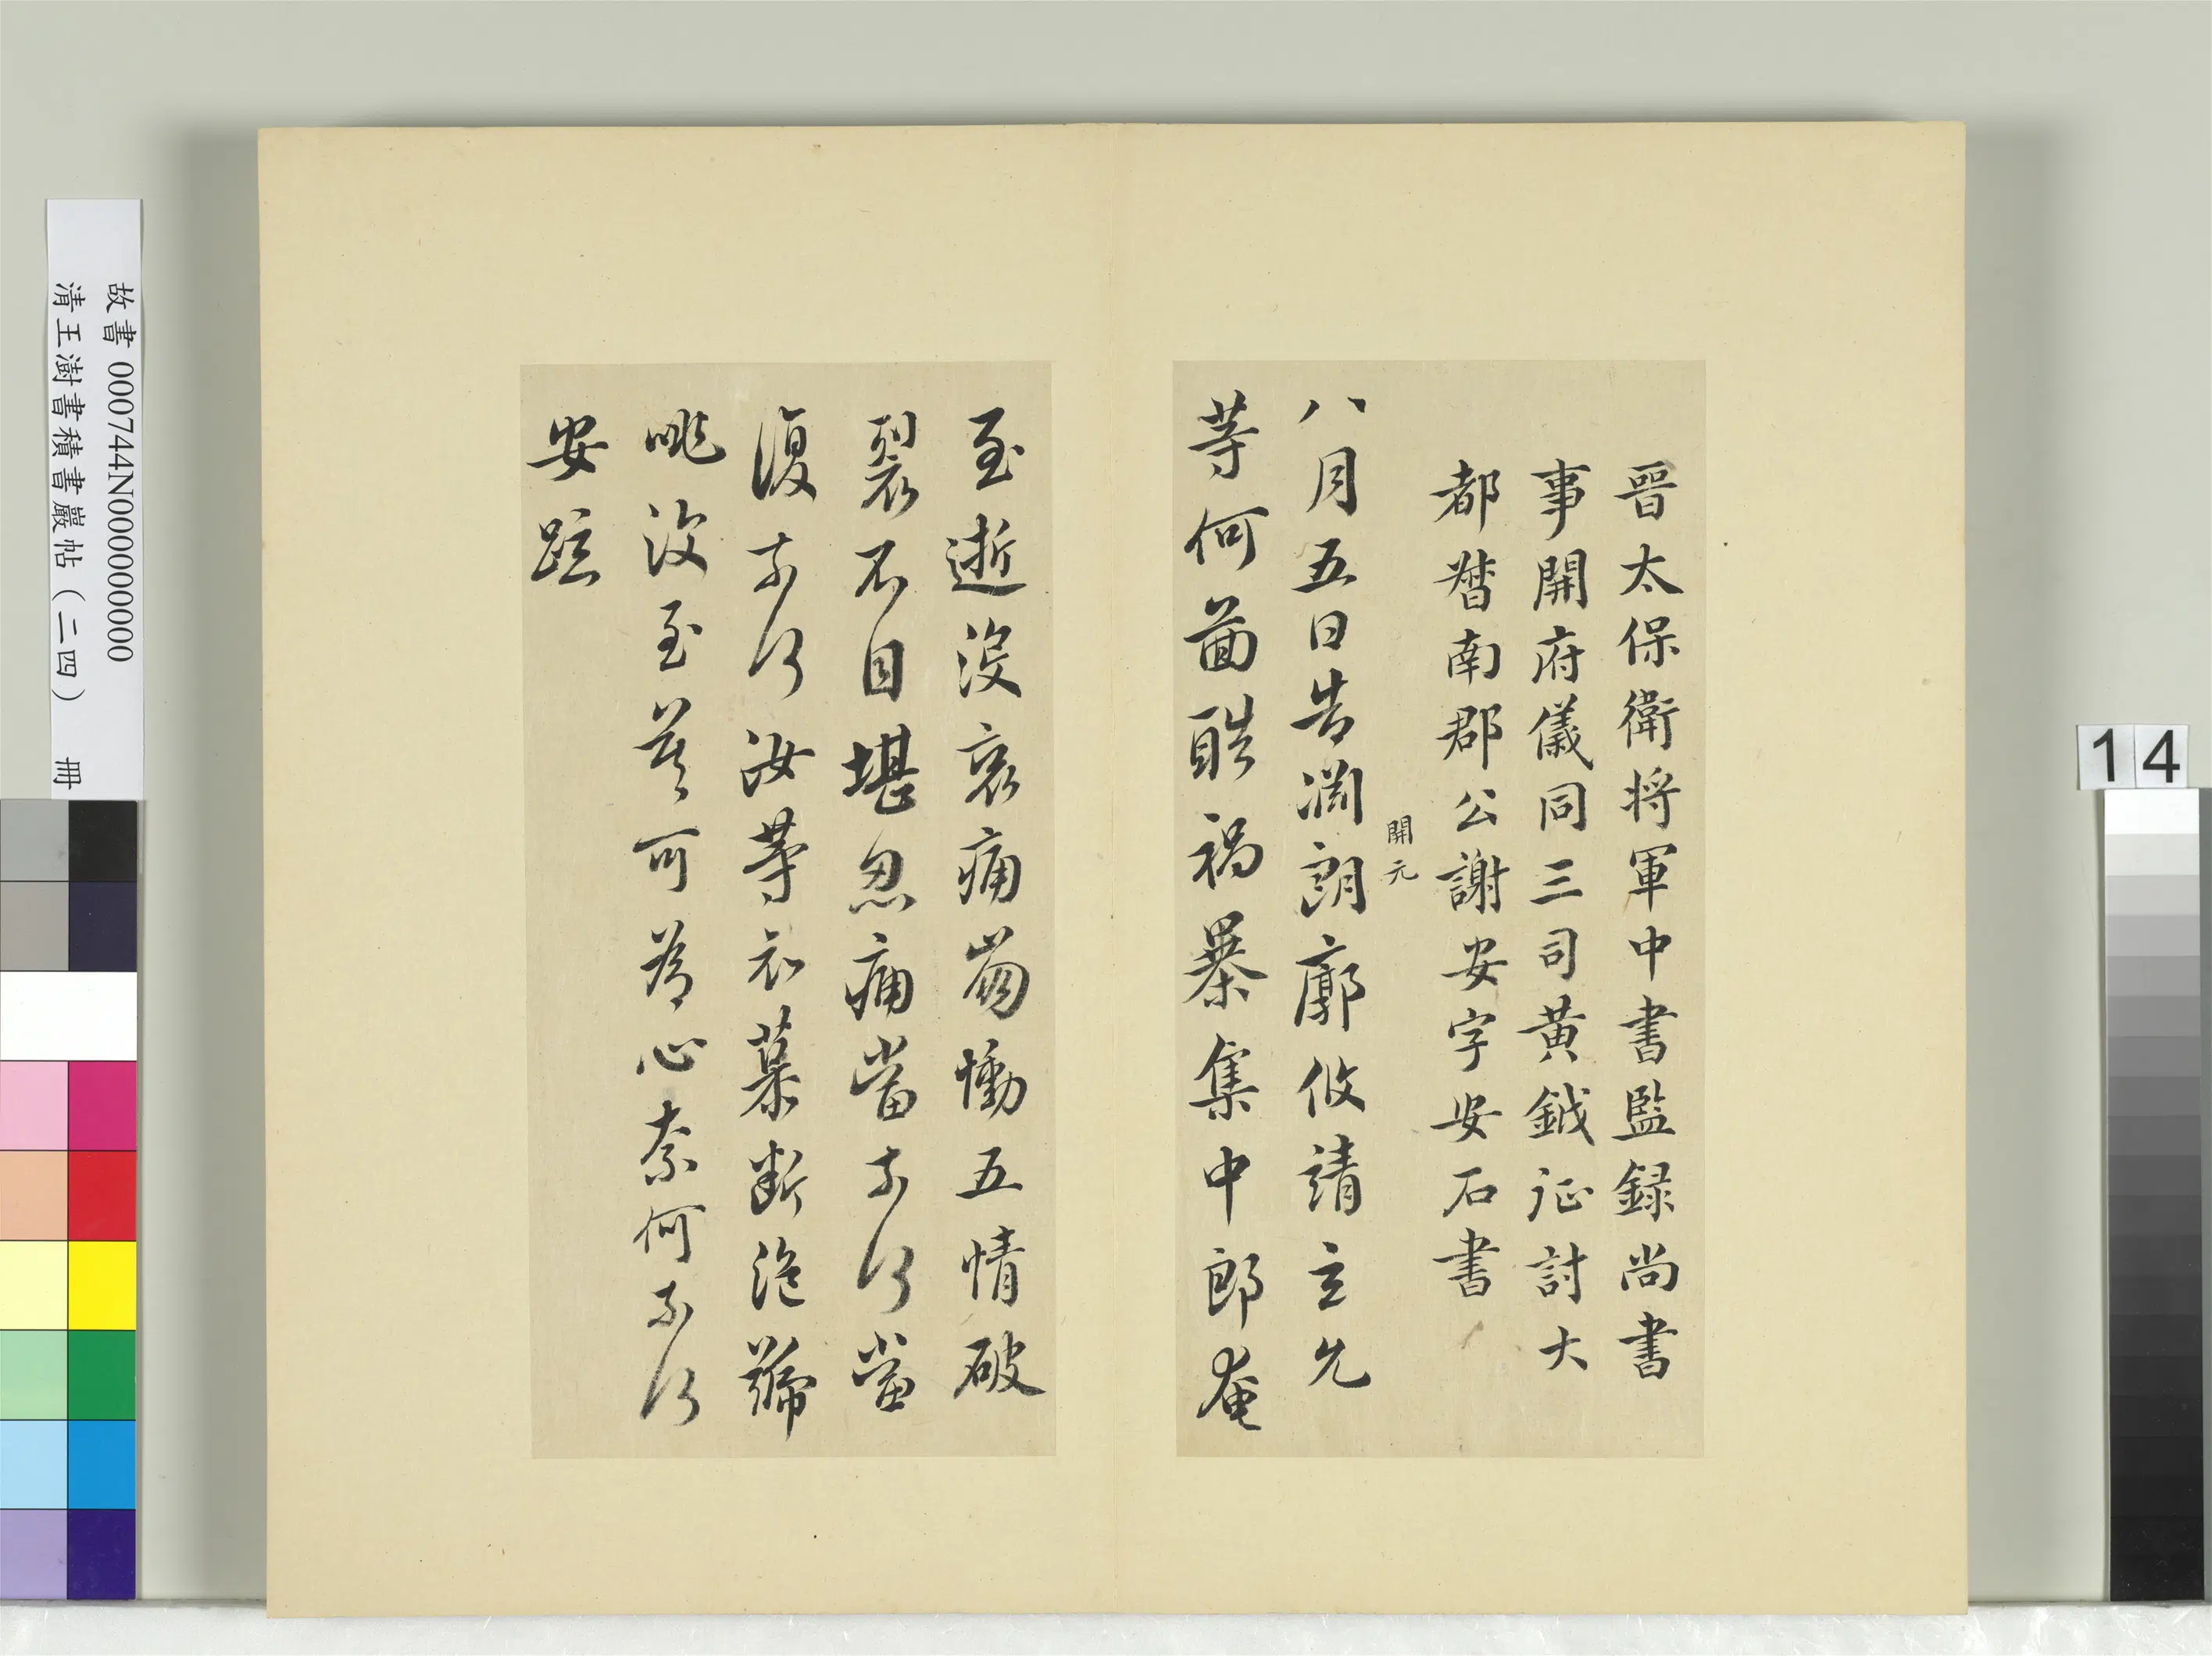 晉太保衛將軍中書監錄尚書
事開府儀同三司黃鉞征討大
都督南郡公謝安字安石書
開元
八月五日告淵朗廓攸靖玄允
等何圖酷禍暴集中郎奄
至逝沒哀痛崩慟五情破
裂不自堪忍痛當奈何當
復奈何汝等哀慕斷絕號
咷深至豈可為心奈何奈何
安疏
故書 000744N000000000
清王澍書積書巖帖（二四） 冊
14